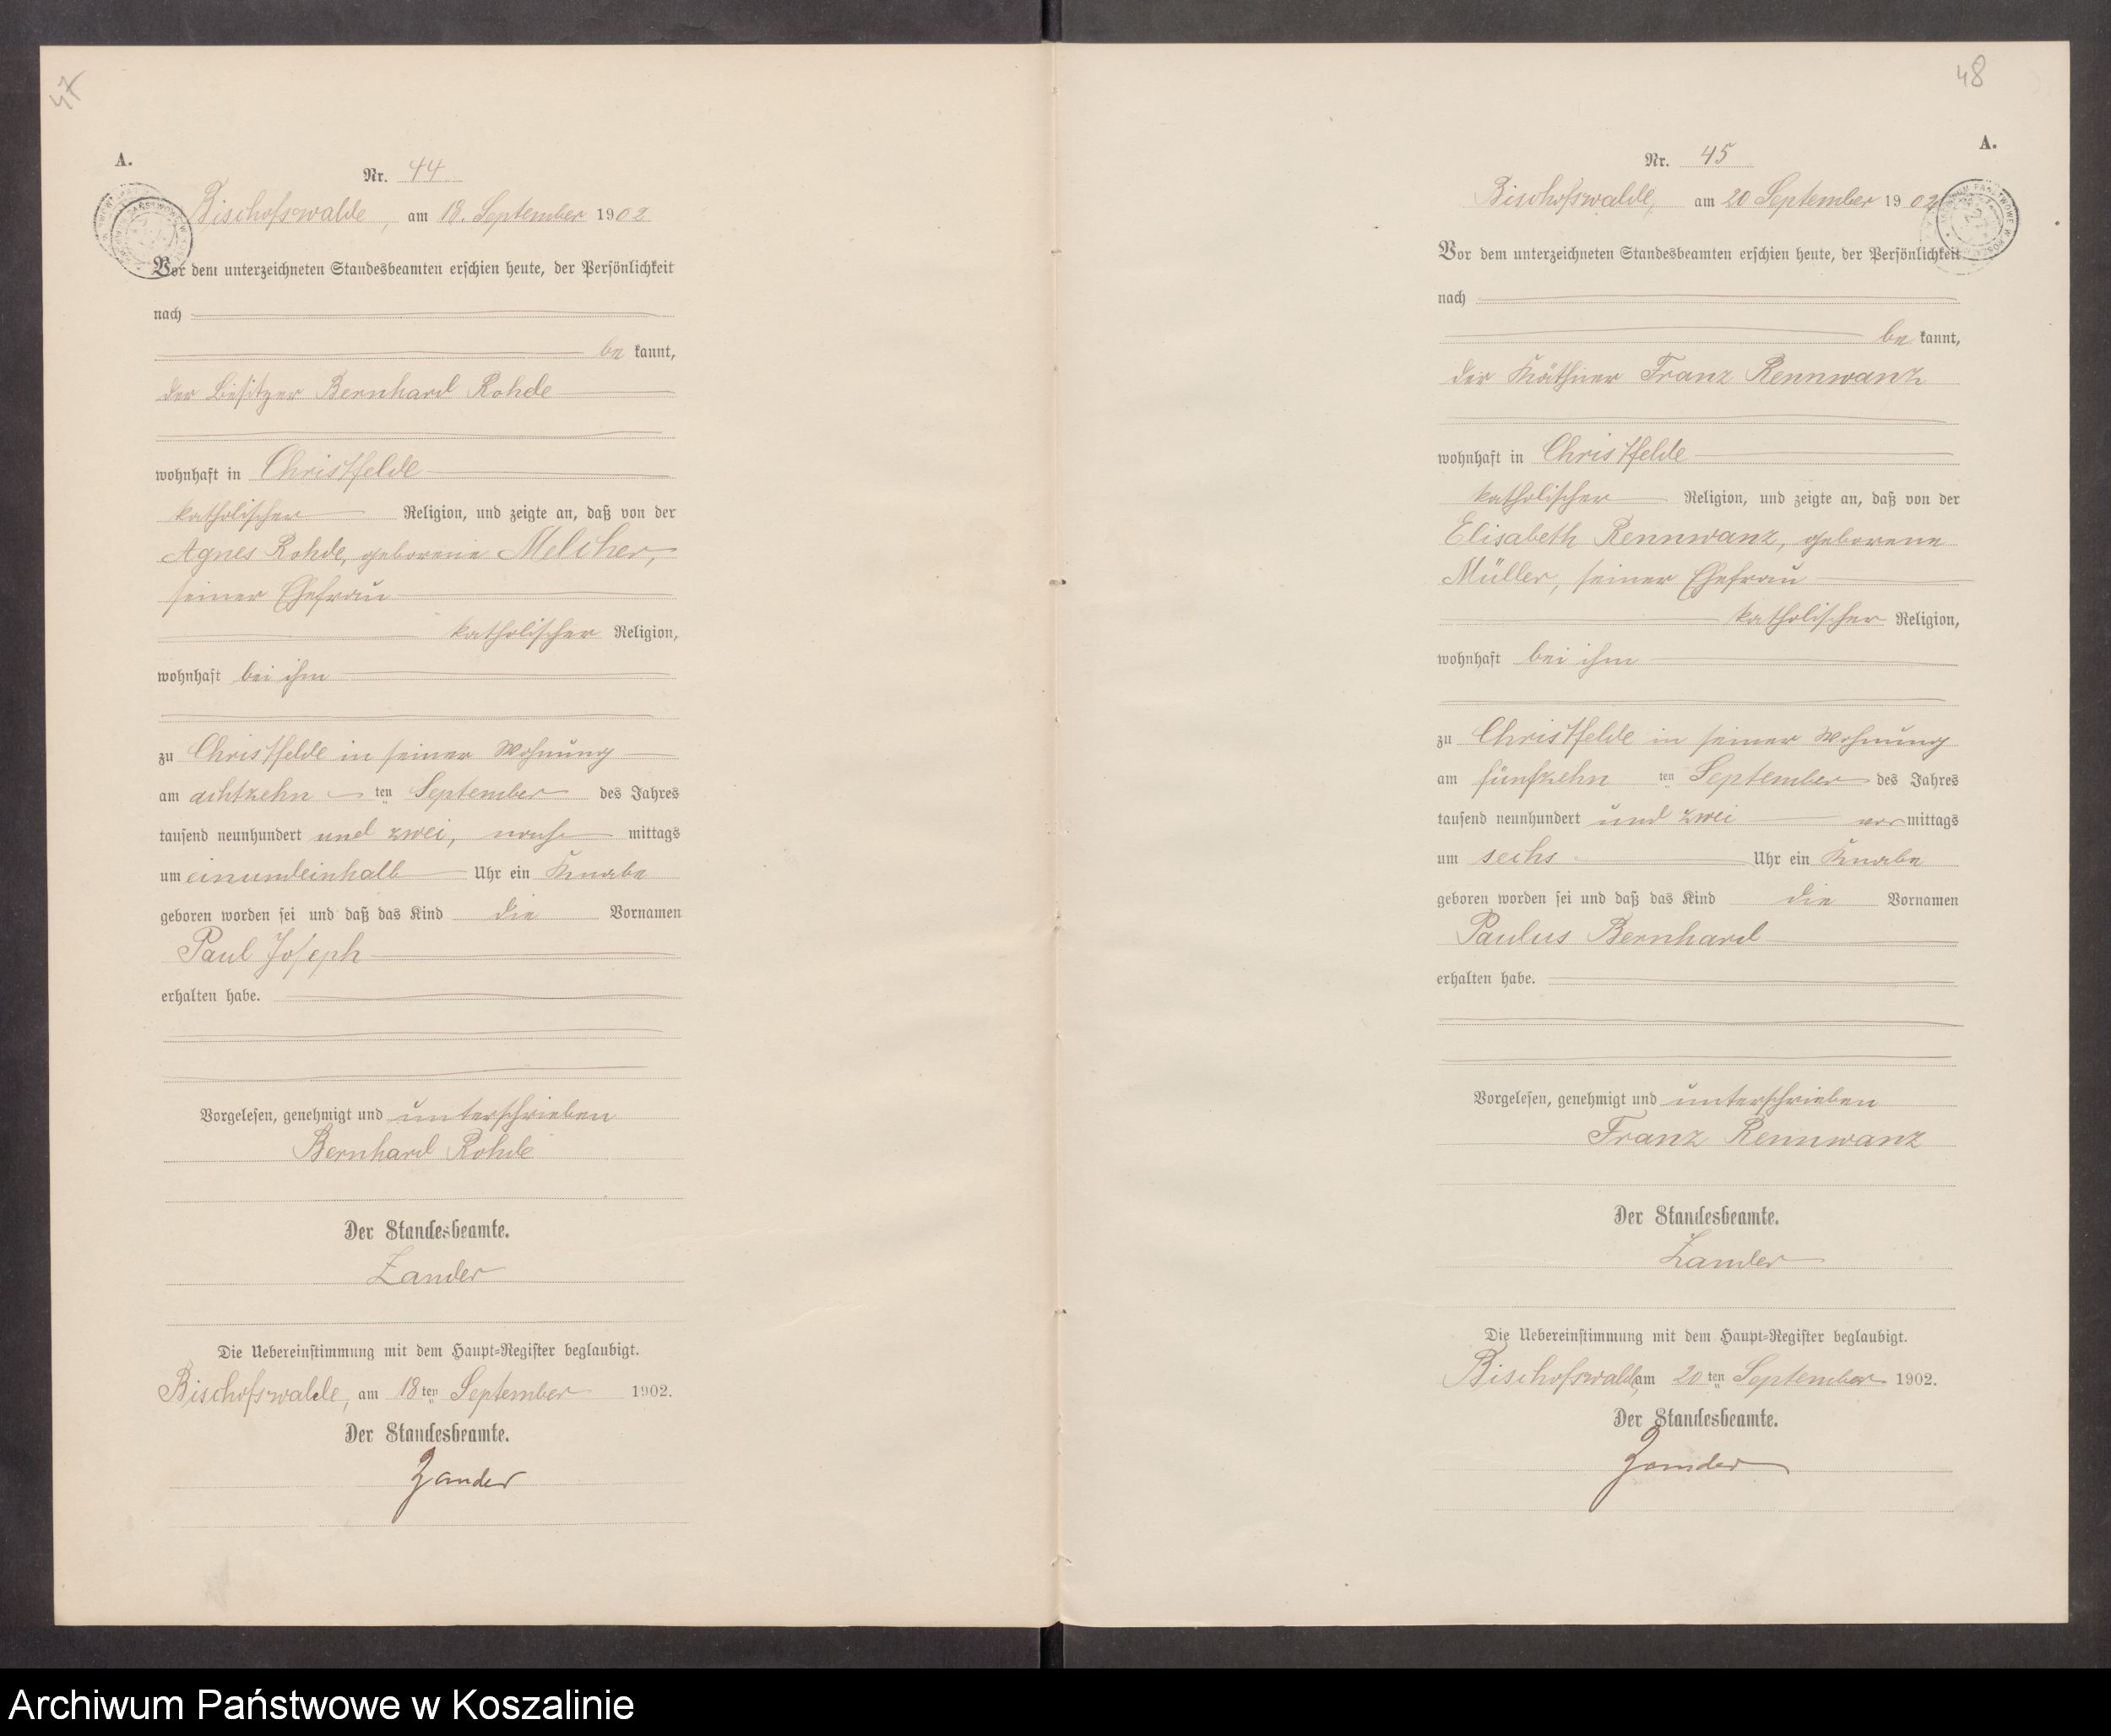 47
A.
Nr. 44
Bischofswalde, am 18. September 1902
Vor dem unterzeichneten Standesbeamten erschien heute, der Persönlichkeit
nach
be kannt,
der Besitzer Bernhard Rohde
wohnhaft in Christfelde
katholischer Religion, und zeigte an, daß von der
Agnes Rohde, geborene Melcher,
seiner Ehefrau
katholischer Religion,
wohnhaft bei ihm
zu Christfelde in seiner Wohnung
am achtzehn ten September des Jahres
tausend neunhundert und zwei, nach mittags
um einundeinhalb Uhr ein Knabe
geboren worden sei und daß das Kind die Vornamen
Paul Joseph
erhalten habe.
Vorgelesen, genehmigt und unterschrieben
Bernhard Rohde
Der Standesbeamte.
Zander
Die Uebereinstimmung mit dem Haupt=Register beglaubigt.
Bischofswalde, am 18ten September 1902.
Der Standesbeamte.
Zander
48
A.
Nr. 45
Bischofswalde, am 20 September 1902
Vor dem unterzeichneten Standesbeamten erschien heute, der Persönlichkeit
nach
be kannt,
der Käthner Franz Rennwanz
wohnhaft in Christfelde
katholischer Religion, und zeigte an, daß von der
Elisabeth Rennwanz, geborene
Müller, seiner Ehefrau
katholischer Religion,
wohnhaft bei ihm
zu Christfelde in seiner Wohnung
am fünfzehn ten September des Jahres
tausend neunhundert und zwei vor mittags
um sechs Uhr ein Knabe
geboren worden sei und daß das Kind die Vornamen
Paulus Bernhard
erhalten habe.
Vorgelesen, genehmigt und unterschrieben
Franz Rennwanz
Der Standesbeamte.
Zander
Die Uebereinstimmung mit dem Haupt=Register beglaubigt.
Bischofswalde, am 20ten September 1902.
Der Standesbeamte.
Zander
Archiwum Państwowe w Koszalinie